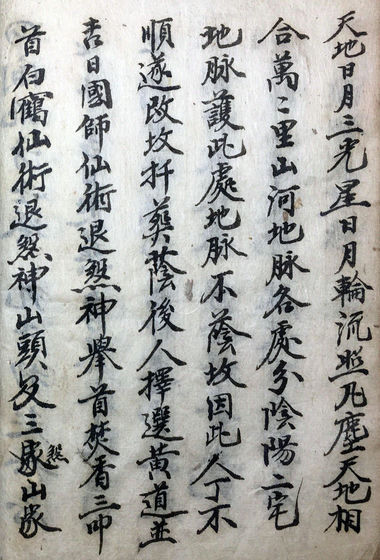 天地日月三光星日月輪流照凡塵天地相
合萬〻里山河地脉各處分陰陽二宅
地脉護此處地脉不蔭坟因此人丁不
順遂改坟扦葬蔭後人擇選黃道並
吉日國師仙術退煞神舉首焚香三叩
首白鶴仙術退煞神山頭父三煞山家